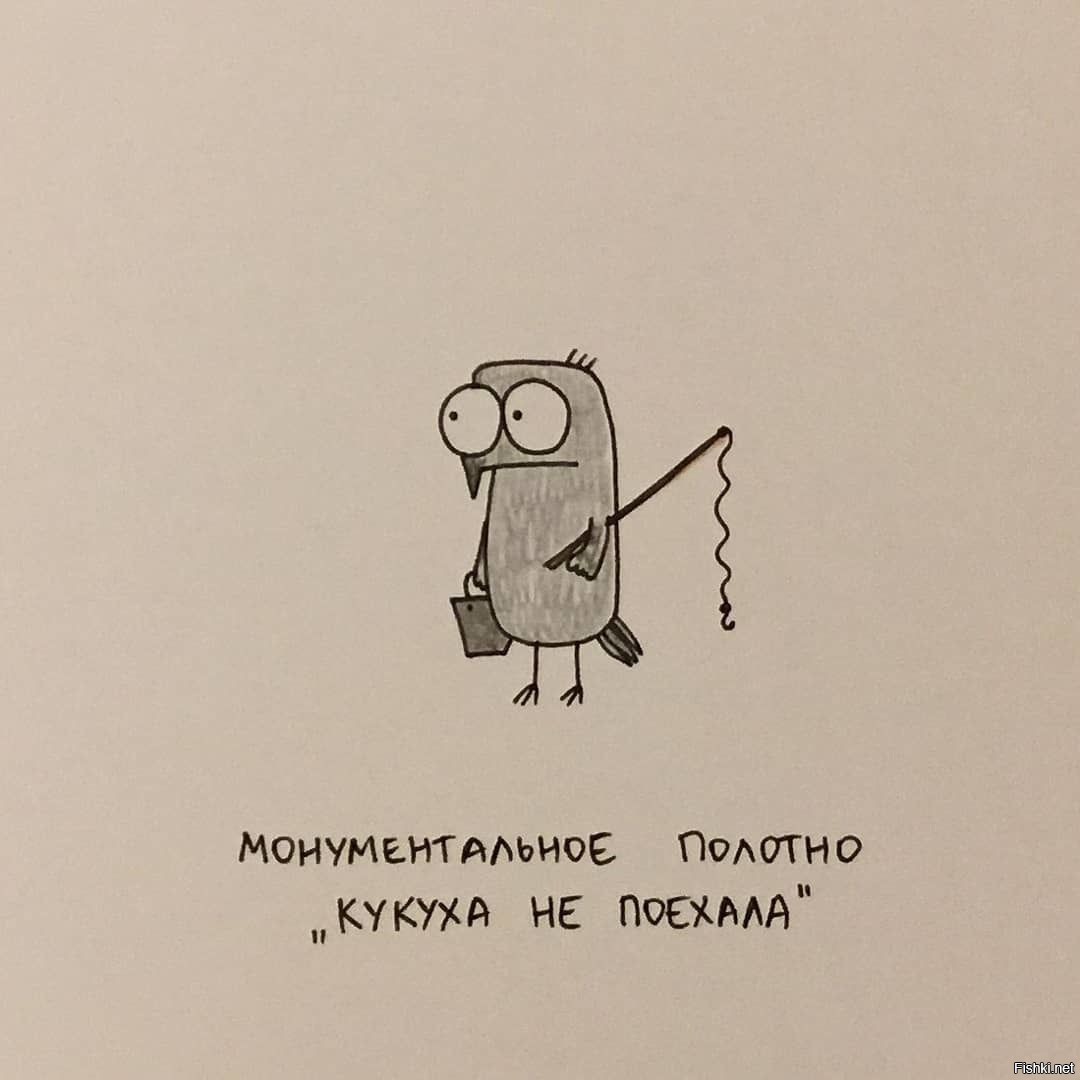 МОНУМЕНТАЛЬНОЕ ПОЛОТНО
„КУКУХА НЕ ПОЕХАЛА"
Fishki.net